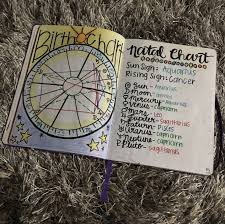 Birth Chart
Natal Chart
Sun Sign: Aquarius
Rising Sign: Cancer
Sun - Aquarius
Moon -
Mercury - Aquarius
Venus - Capricorn
Mars - Leo
Jupiter - Sagittarius
Saturn - Pisces
Uranus - Capricorn
Neptune - Capricorn
Pluto - Sagittarius